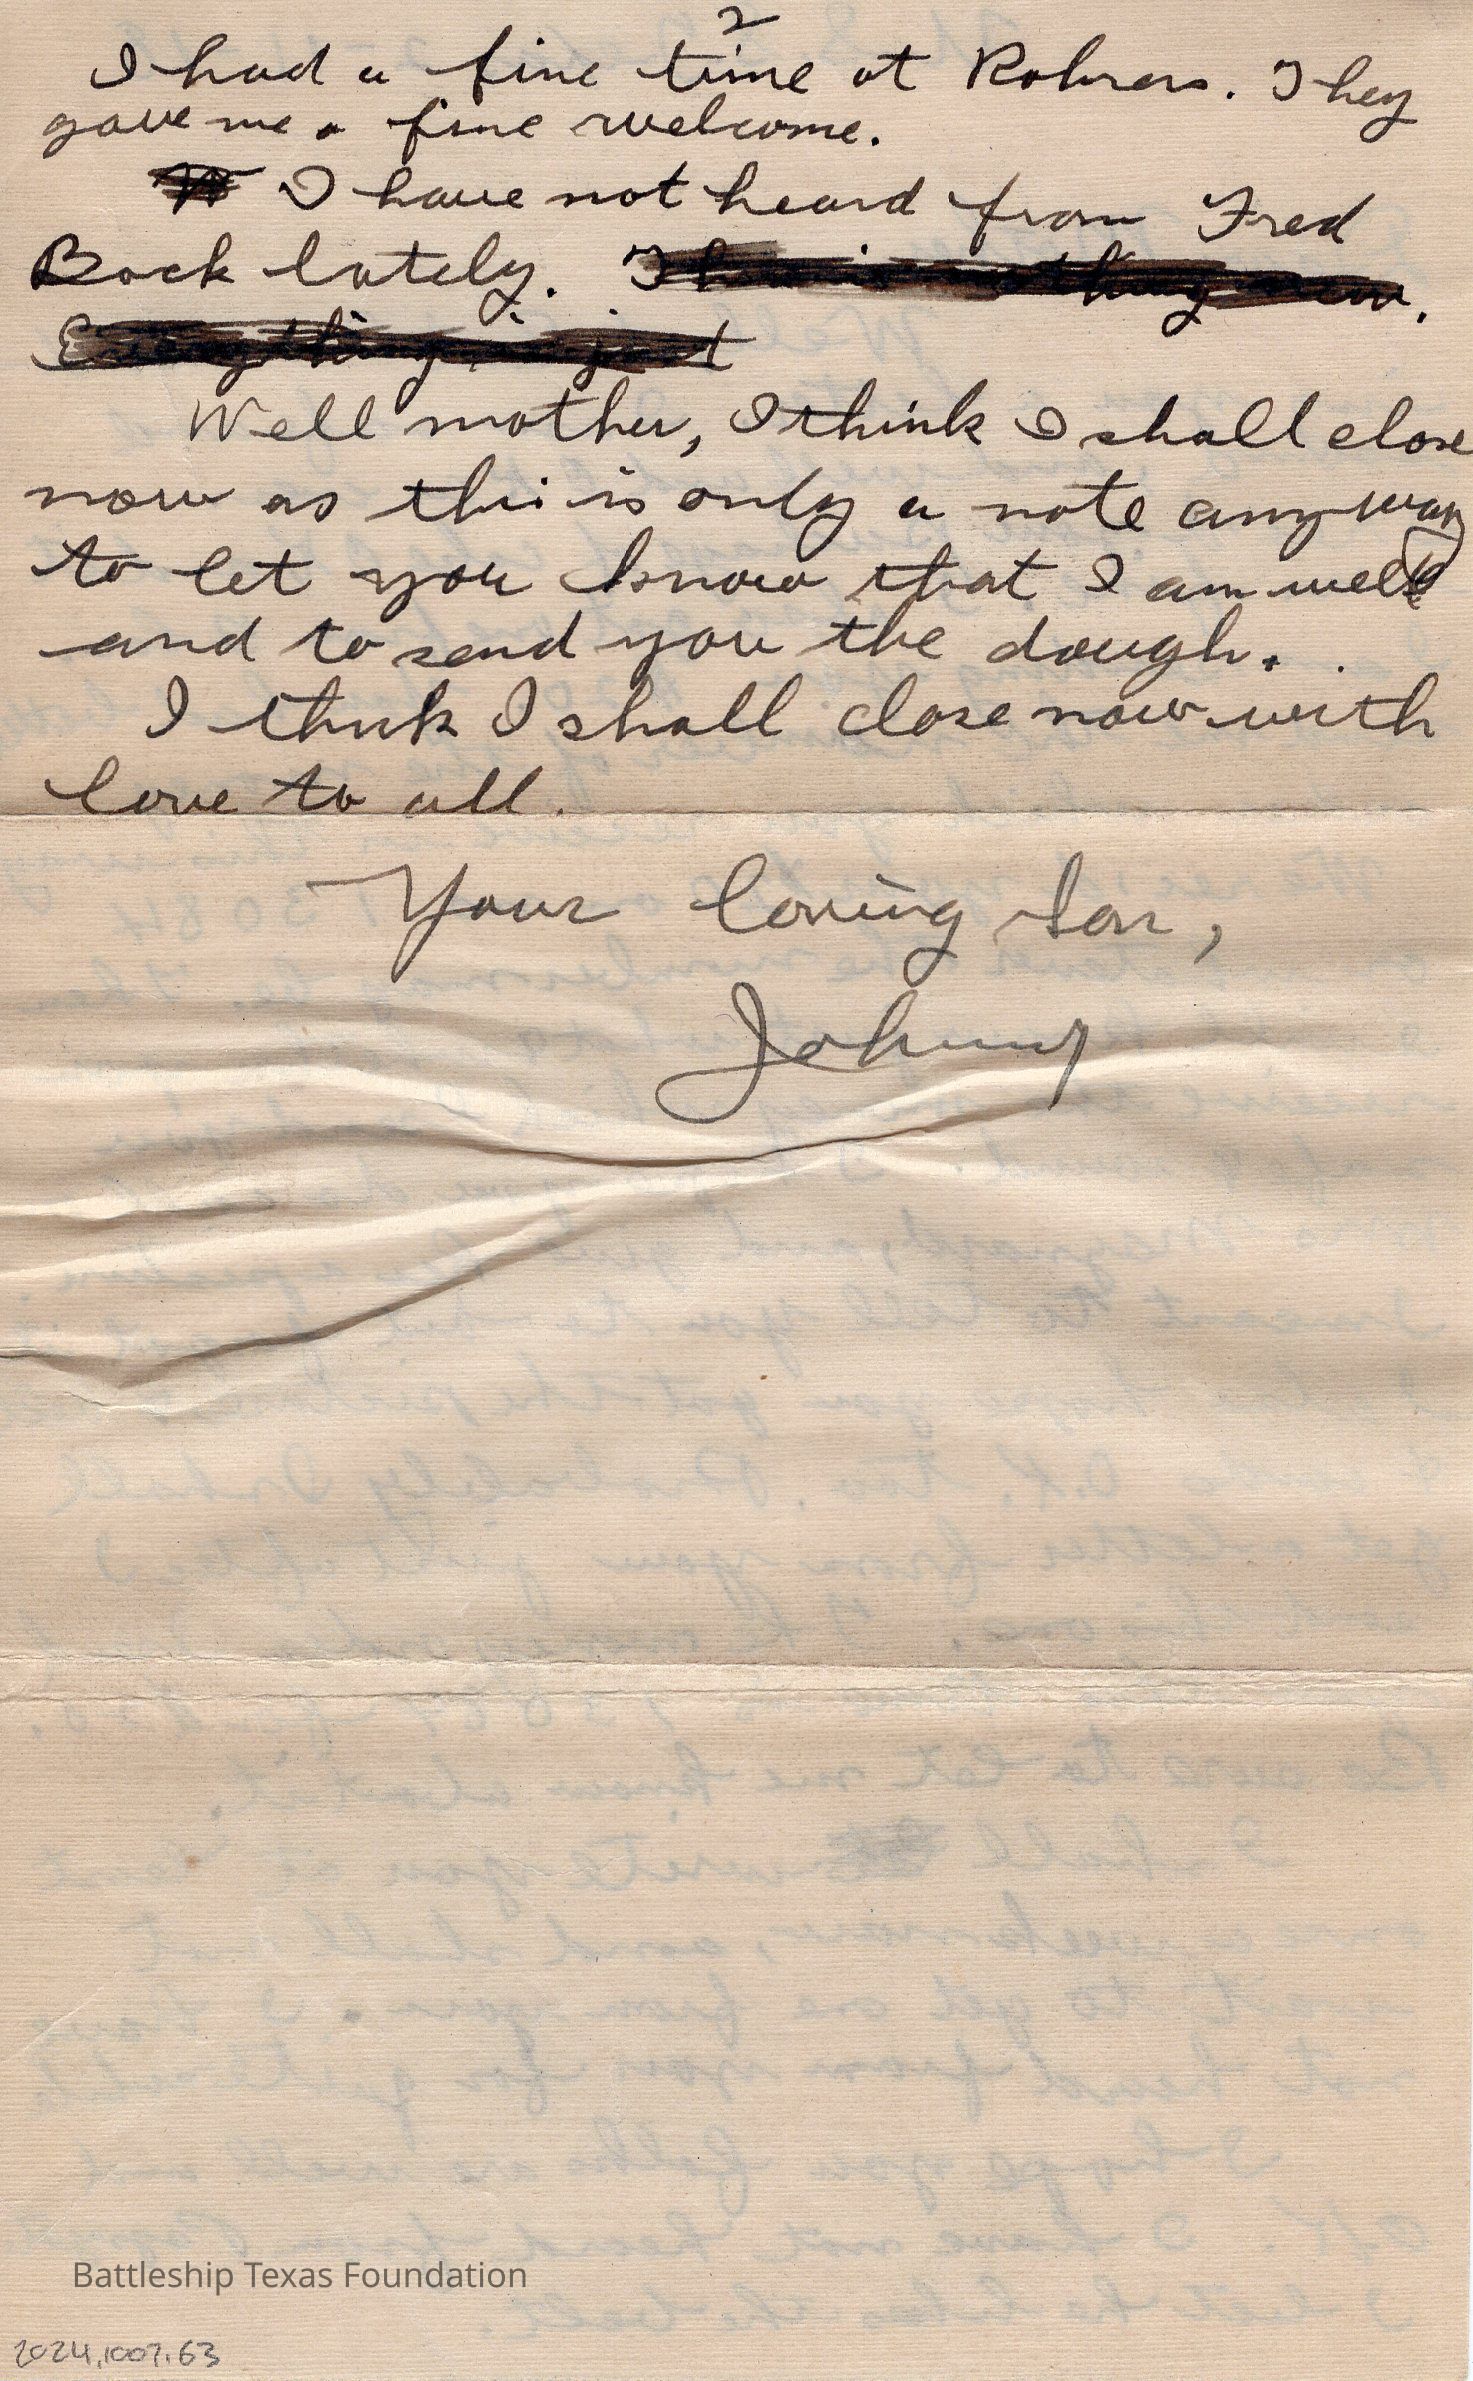 2
I had a fine time at Rohrers. They
gave me a fine welcome.
I have not heard from Fred
Back lately. There is nothing new.
Everything is just
Well mother, I think I shall close
now as this is only a note anyway
to let you know that I am well
and to send you the dough.
I think I shall close now with
love to all.
Your loving son,
Johnny
Battleship Texas Foundation
2024.1007.63